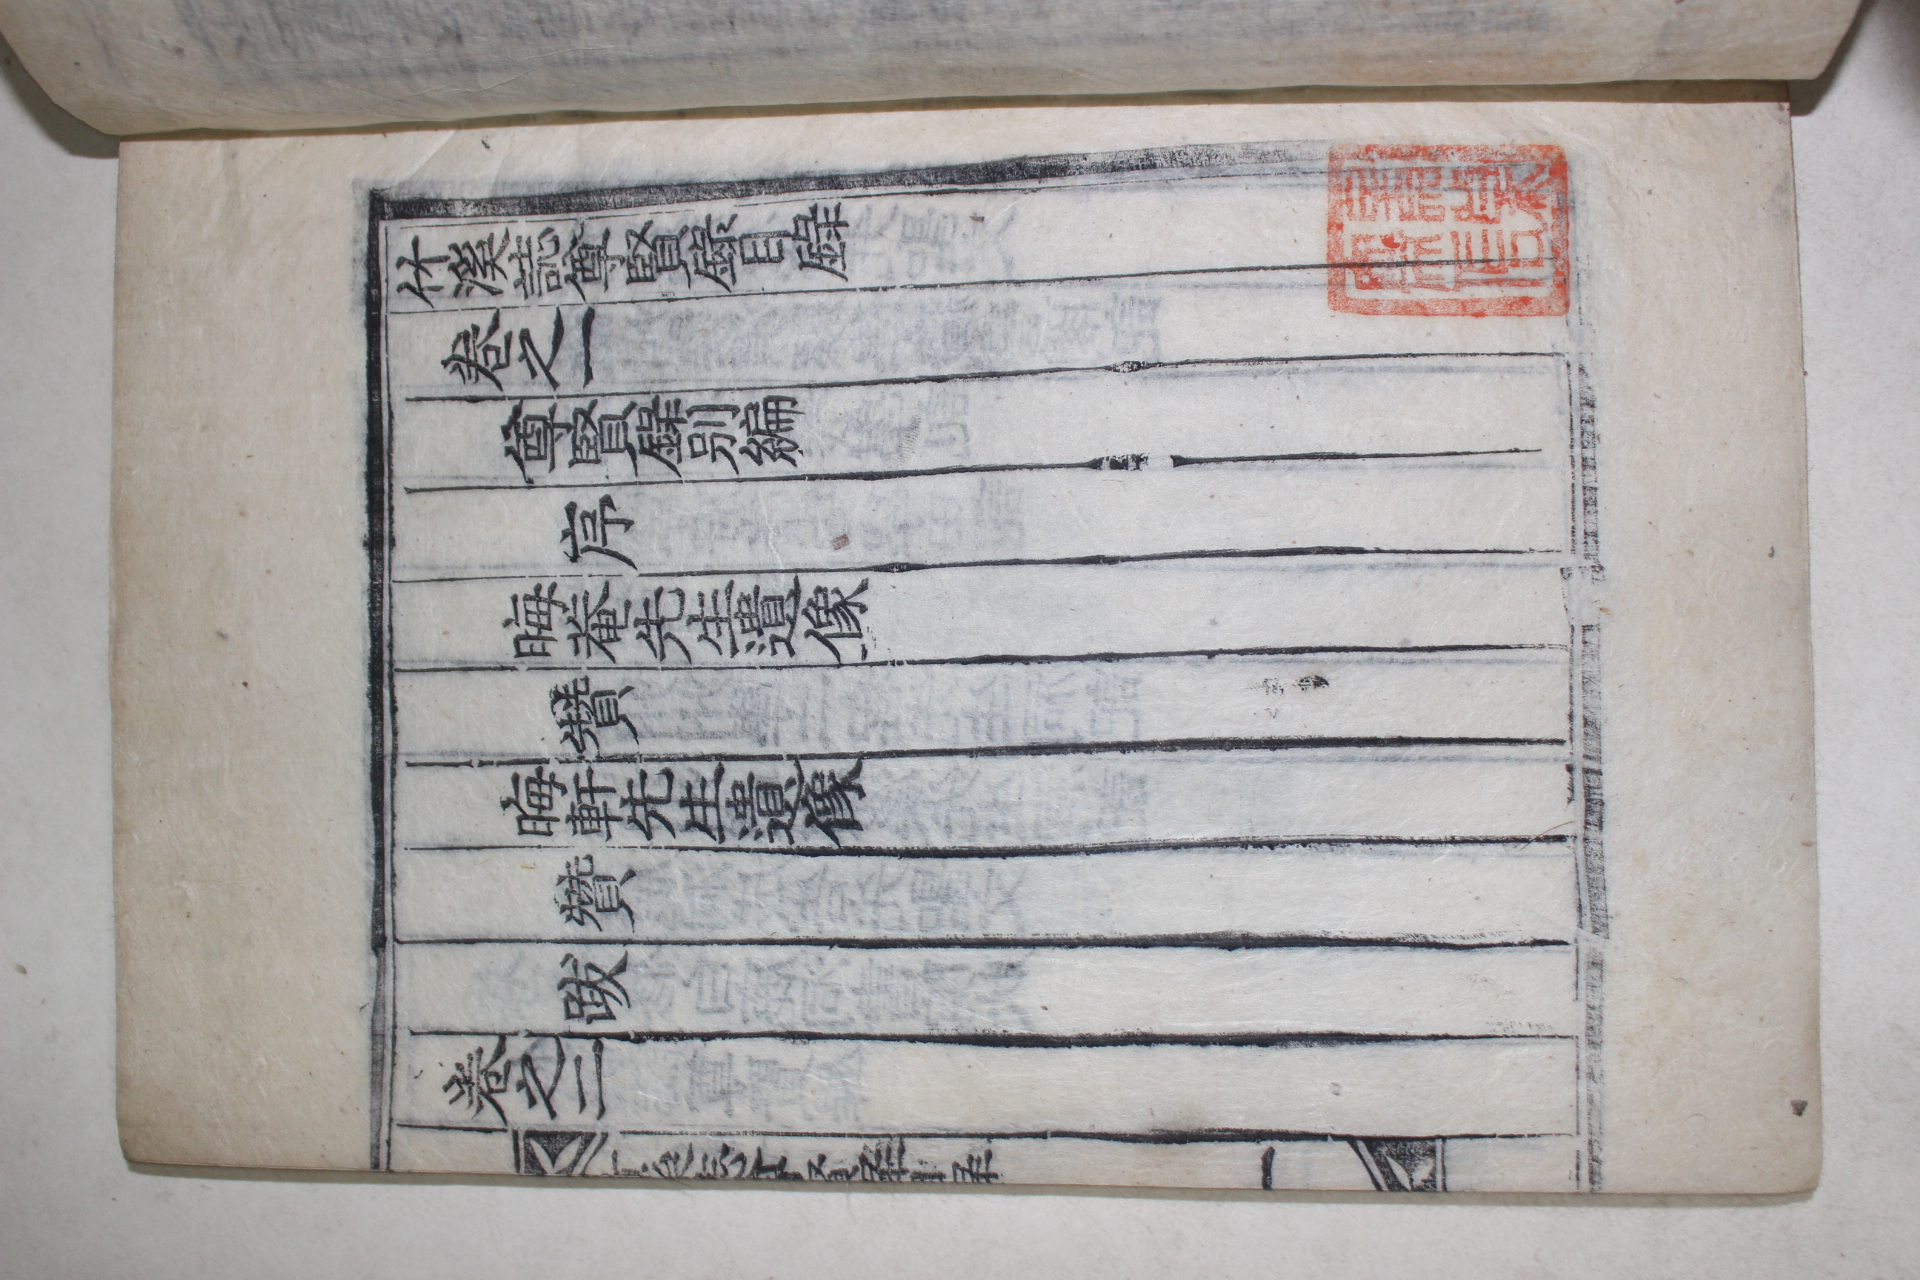 竹溪誌尊賢錄目錄
卷之一
尊賢錄別編
序
晦菴先生遺像
贊
晦軒先生遺像
贊
跋
卷之二